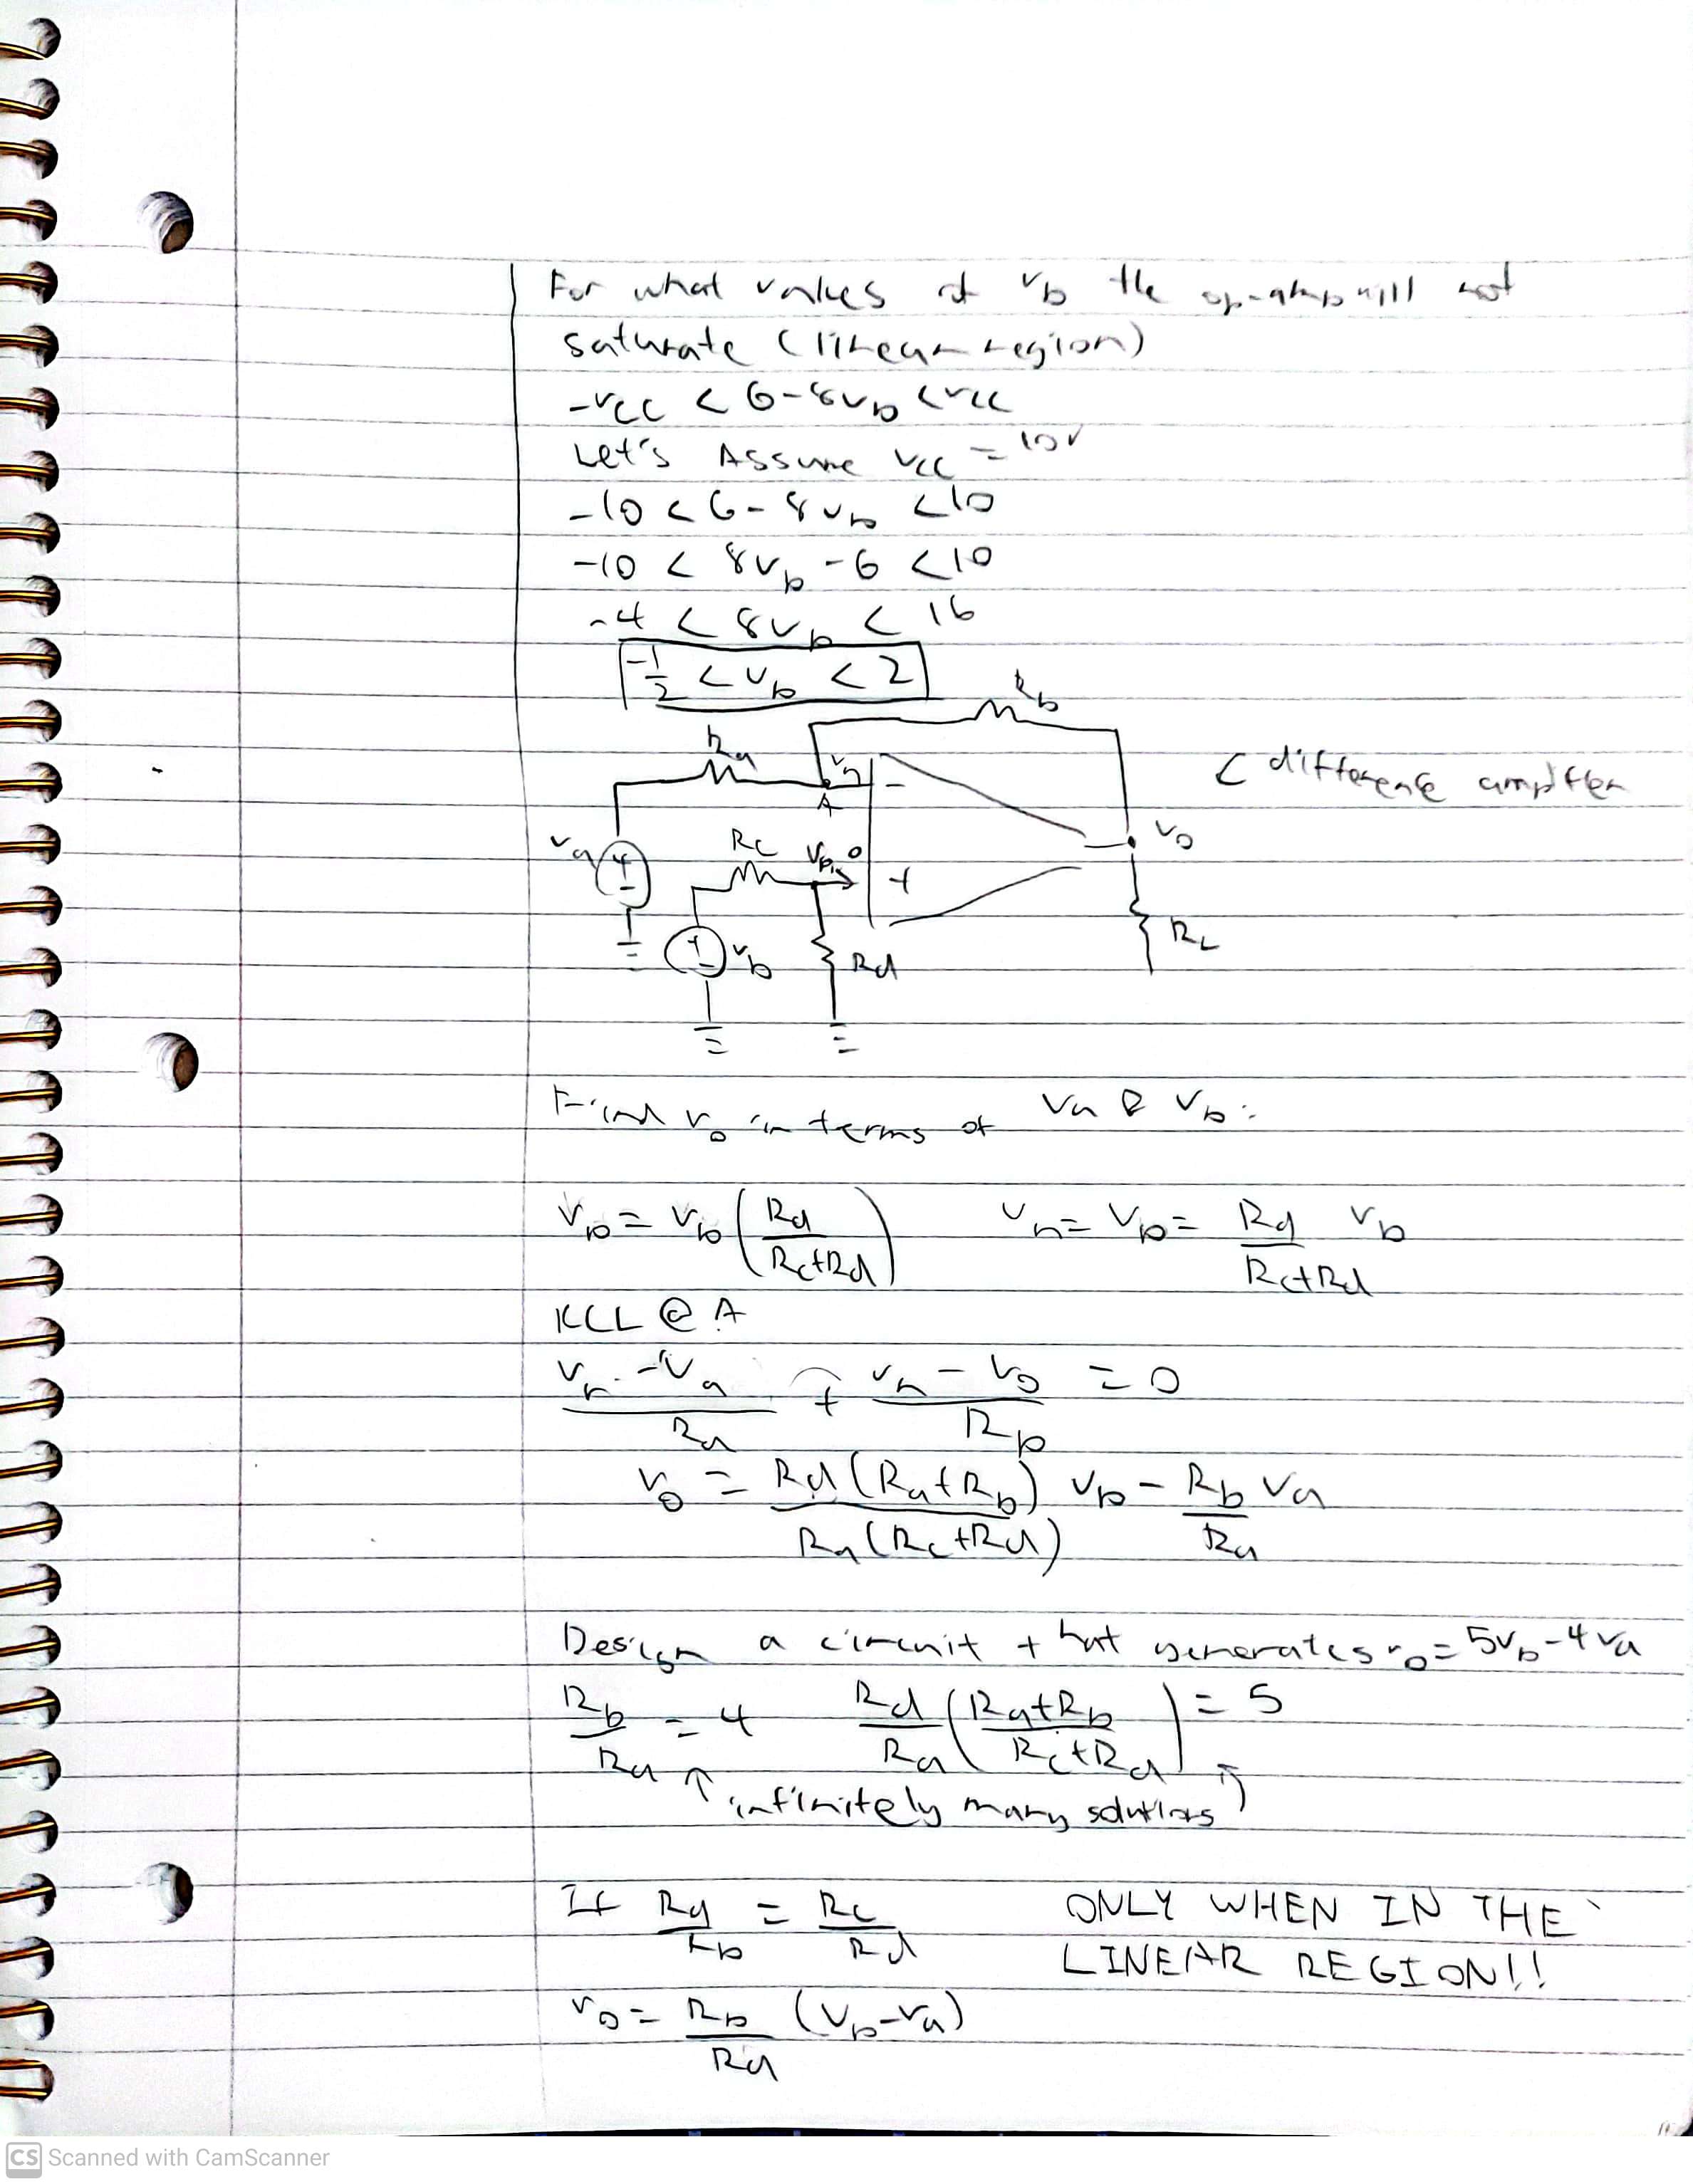 For what values of vb the op-amp will not
saturate (linear region)
-vcc < 6-8vb < vcc
Let's Assume vcc = 10v
-10 < 6-8vb < 10
-10 < 8vb -6 < 10
-4 < 8vb < 16
-1/2 < vb < 2
Rb
Ra
vn
-
< difference amplifier
A
vo
va
+
-
Rc
vp
0
+
RL
+
-
vb
Rd
Find vo in terms of va & vb:
vp = vb (Rd/(Rc+Rd)) vn = vp = Rd/(Rc+Rd) vb
KCL @ A
(vn - va)/Ra + (vn - vo)/Rb = 0
vo = Rd(Ra+Rb)/(Ra(Rc+Rd)) vb - Rb/Ra va
Design a circuit that generates vo = 5vb-4va
Rb/Ra = 4 Rd/Ra ((Ra+Rb)/(Rc+Rd)) = 5
↑ infinitely many solutions ↑
If Ra/Rb = Rc/Rd ONLY WHEN IN THE
LINEAR REGION!!
vo = Rb/Ra (vb-va)
CS Scanned with CamScanner